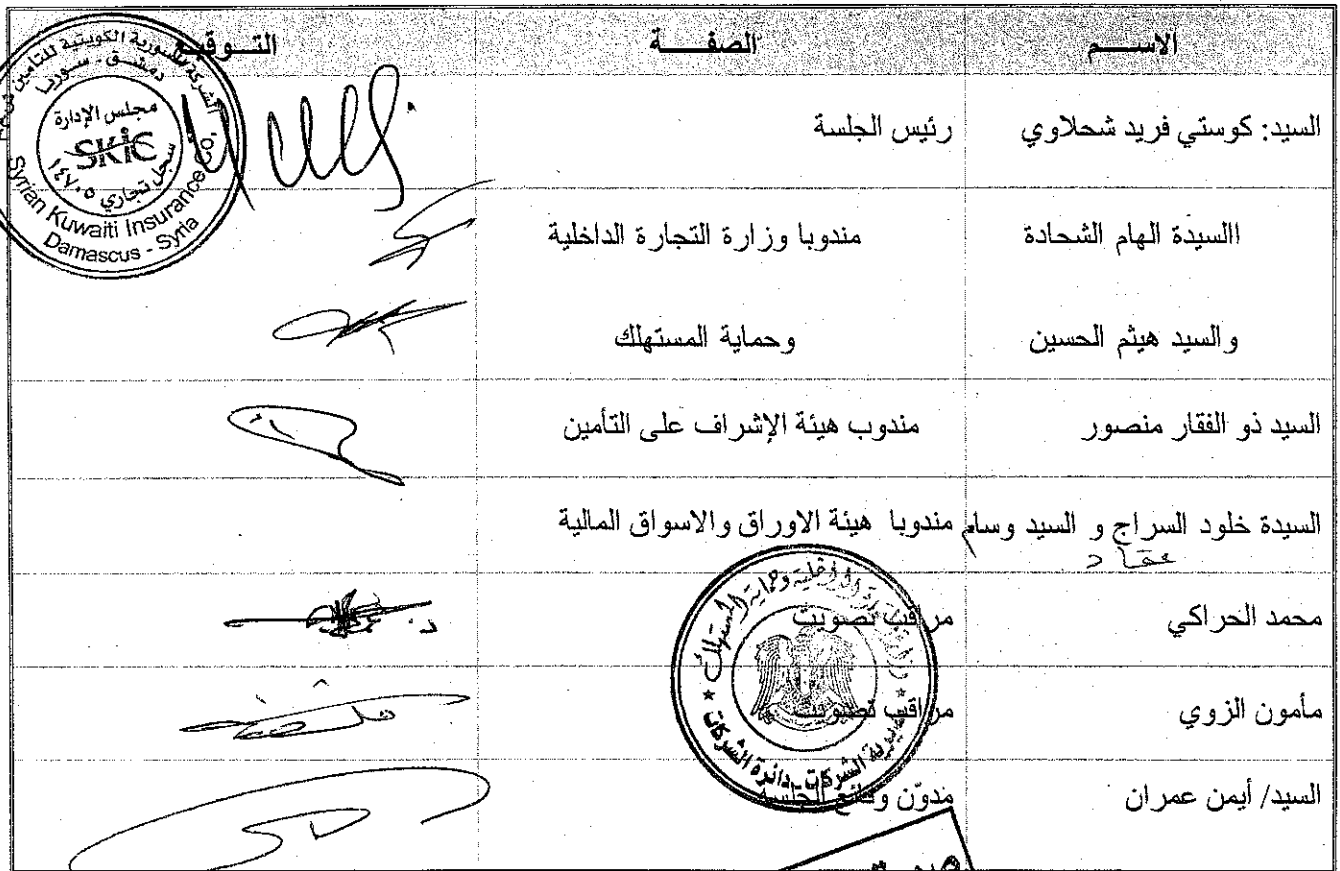 الاســـم الصفـــة التـــوقيع
السيد: كوستي فريد شحلاوي رئيس الجلسة
االسيدة الهام الشحادة مندوبا وزارة التجارة الداخلية
والسيد هيثم الحسين وحماية المستهلك
السيد ذو الفقار منصور مندوب هيئة الإشراف على التأمين
السيدة خلود السراج و السيد وسام مندوبا هيئة الاوراق والاسواق المالية
عقاد
محمد الحراكي مراقب تصويت
مأمون الزوي مراقب تصويت
السيد/ أيمن عمران مدوّن وقائع الجلسة
الشركة السورية الكويتية للتأمين
دمشق - سوريا
مجلس الإدارة
SKIC
سجل تجاري ١٤٧٠٥
Syrian Kuwaiti Insurance Co.
Damascus - Syria
وحماية المستهلك
مديرية الشركات - دائرة الشركات